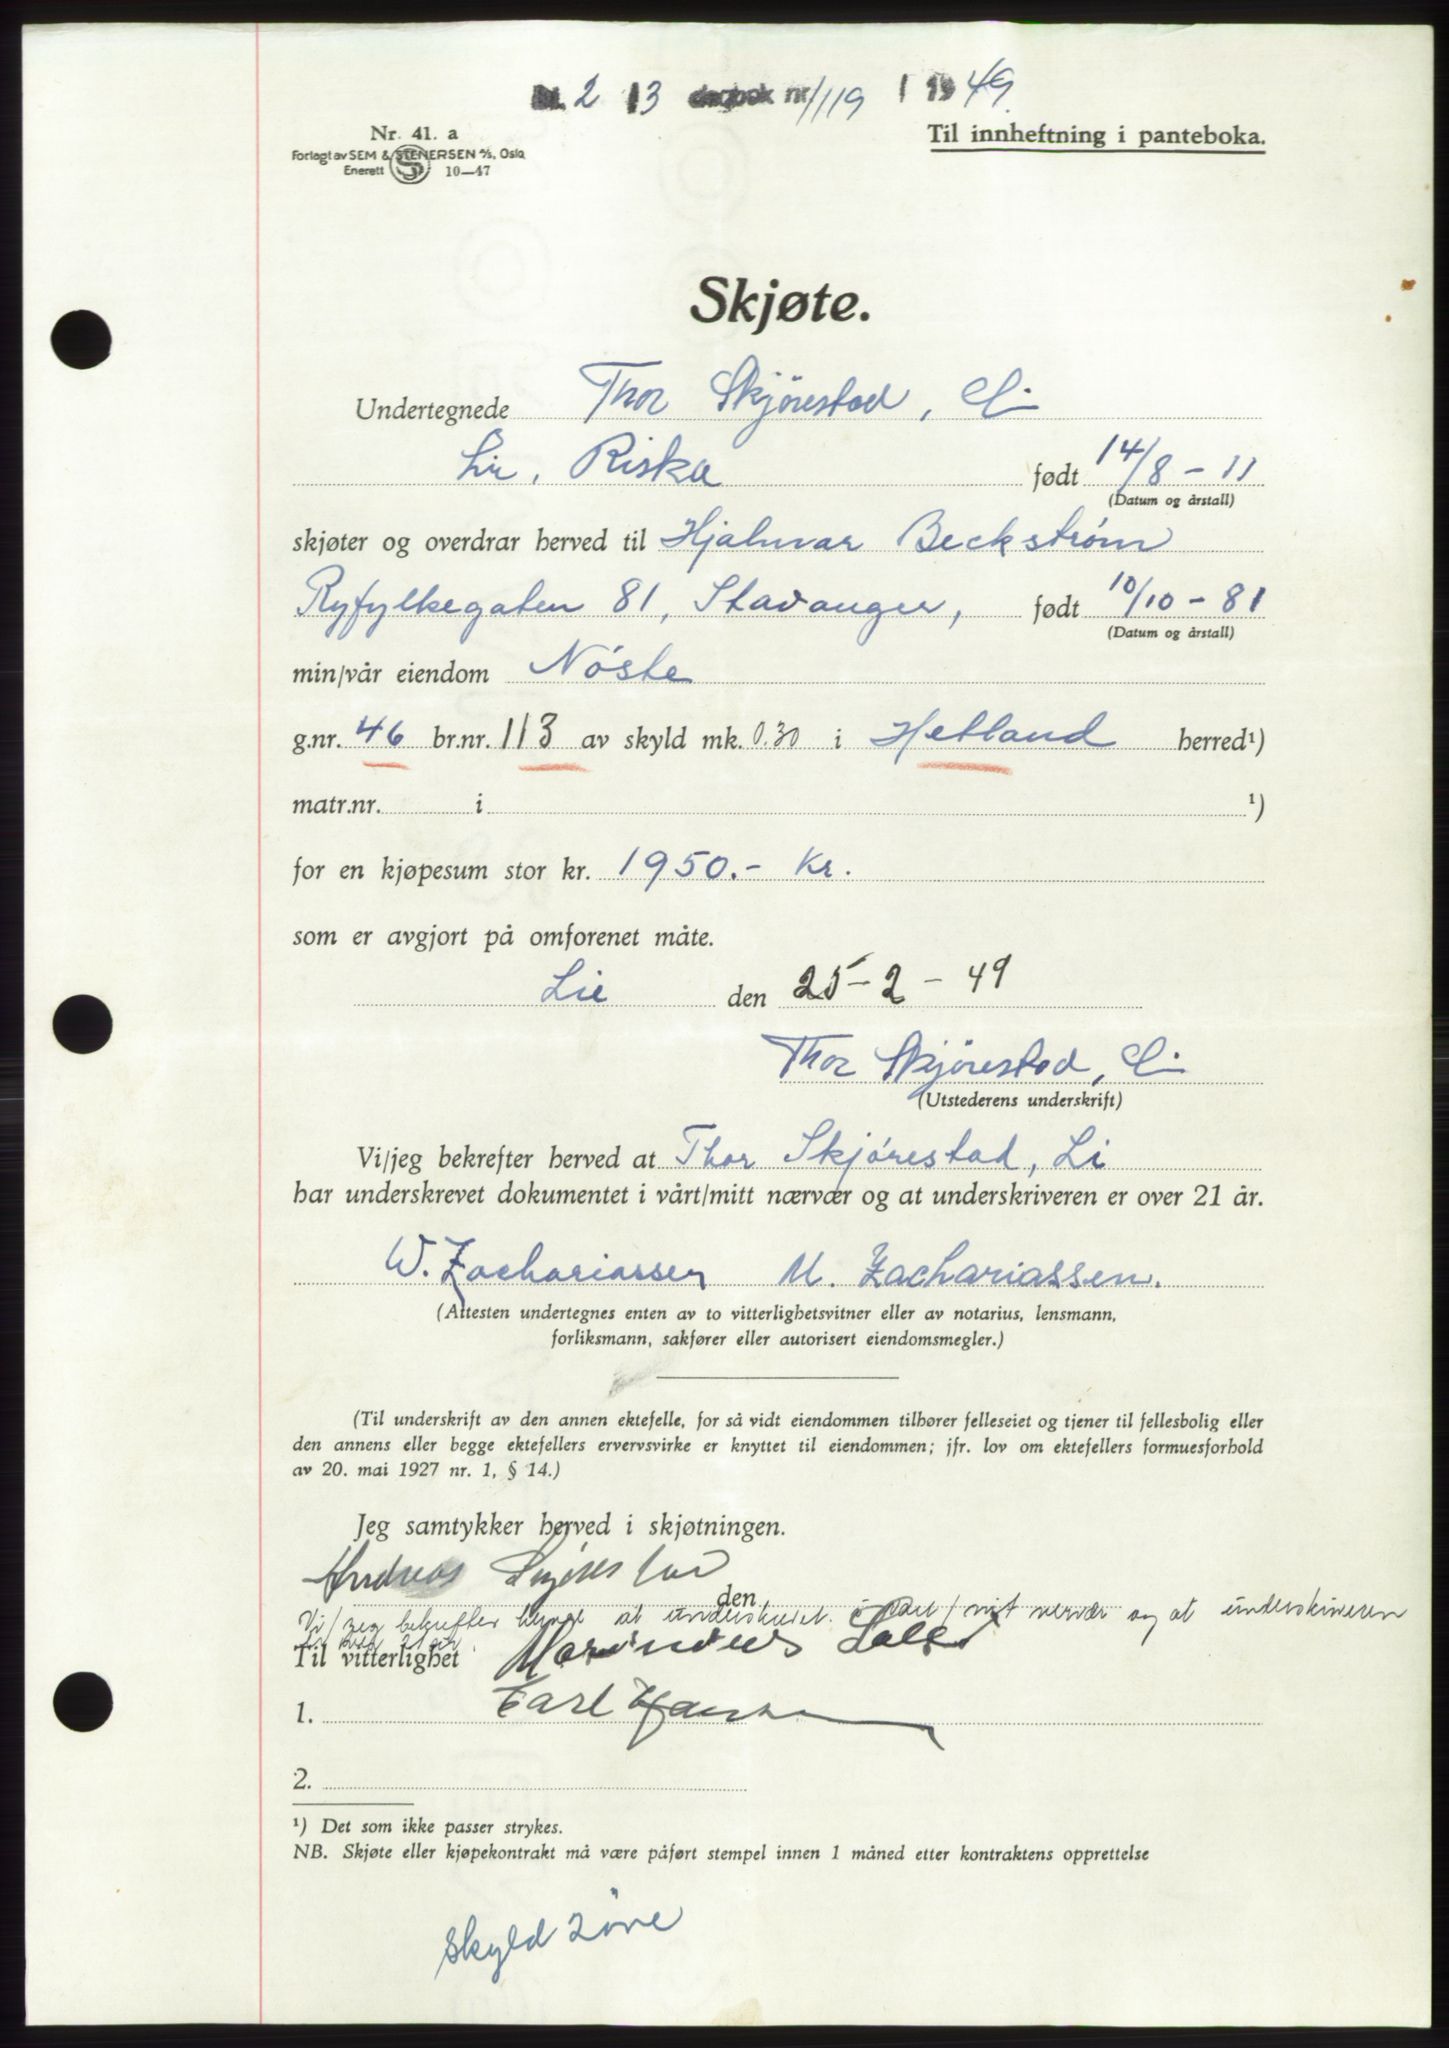 2 / 3 dagbok nr. 1119 / 1949
Nr. 41. a
Forlagt av SEM & STENERSEN A/S, Oslo
Enerett 10—47
Til innheftning i panteboka.
Skjøte.
Undertegnede Thor Skjørestad, Li
Lie, Riska født 14/8 - 11
(Datum og årstall)
skjøter og overdrar herved til Hjalmar Beckstrøm
Ryfylkegaten 81, Stavanger, født 10/10 - 81
(Datum og årstall)
min/vår eiendom Nöste
g.nr. 46 br.nr. 113 av skyld mk. 0.30 i Hetland herred¹)
matr.nr. i ¹)
for en kjøpesum stor kr. 1950.- Kr.
som er avgjort på omforenet måte.
Lie den 25-2-49
Thor Skjørestad, Li
(Utstederens underskrift)
Vi/jeg bekrefter herved at Thor Skjørestad, Li
har underskrevet dokumentet i vårt/mitt nærvær og at underskriveren er over 21 år.
W. Zachariassen M. Zachariassen.
(Attesten undertegnes enten av to vitterlighetsvitner eller av notarius, lensmann,
forliksmann, sakfører eller autorisert eiendomsmegler.)
(Til underskrift av den annen ektefelle, for så vidt eiendommen tilhører felleseiet og tjener til fellesbolig eller
den annens eller begge ektefellers ervervsvirke er knyttet til eiendommen; jfr. lov om ektefellers formuesforhold
av 20. mai 1927 nr. 1, § 14.)
Jeg samtykker herved i skjøtningen.
Andreas
den
Vi/jeg bekrefter herved at underskrevet i vårt/mitt nervær og at underskriveren
er over 21 år
Til vitterlighet
1. Karl Hansen
2.
¹) Det som ikke passer strykes.
NB. Skjøte eller kjøpekontrakt må være påført stempel innen 1 måned etter kontraktens opprettelse
Skyld